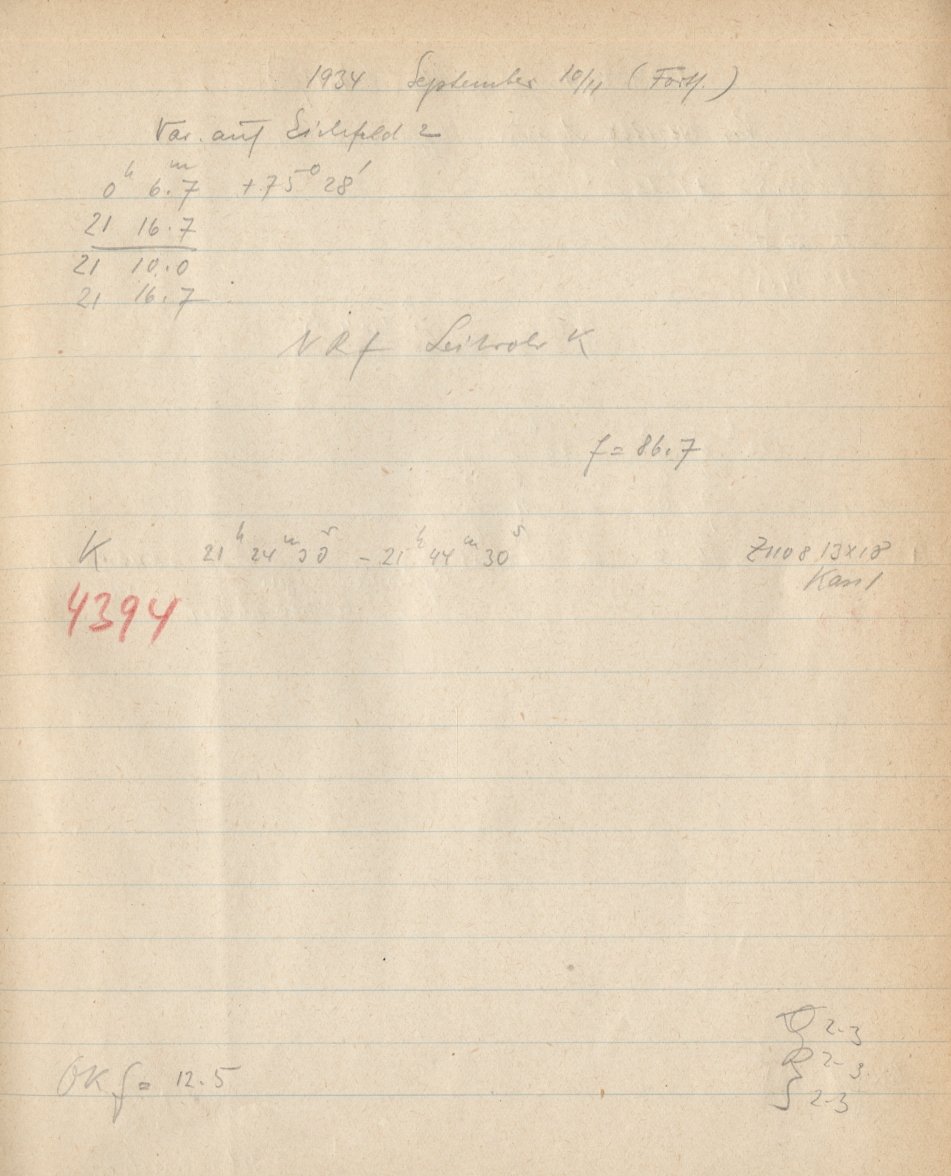 1934 September 10/11 (Forts.)
Var. auf Eichfeld 2
0ʰ 6.ᵐ7 +75° 28′
21 16.7
21 10.0
21 16.7
NRf Leitrohr K
f = 86.7
K. 21ʰ 24ᵐ 30ˢ – 21ʰ 44ᵐ 30ˢ Z1108 13x18
Kass 1
4394
2-3
2-3
OK f = 12.5
S 2-3